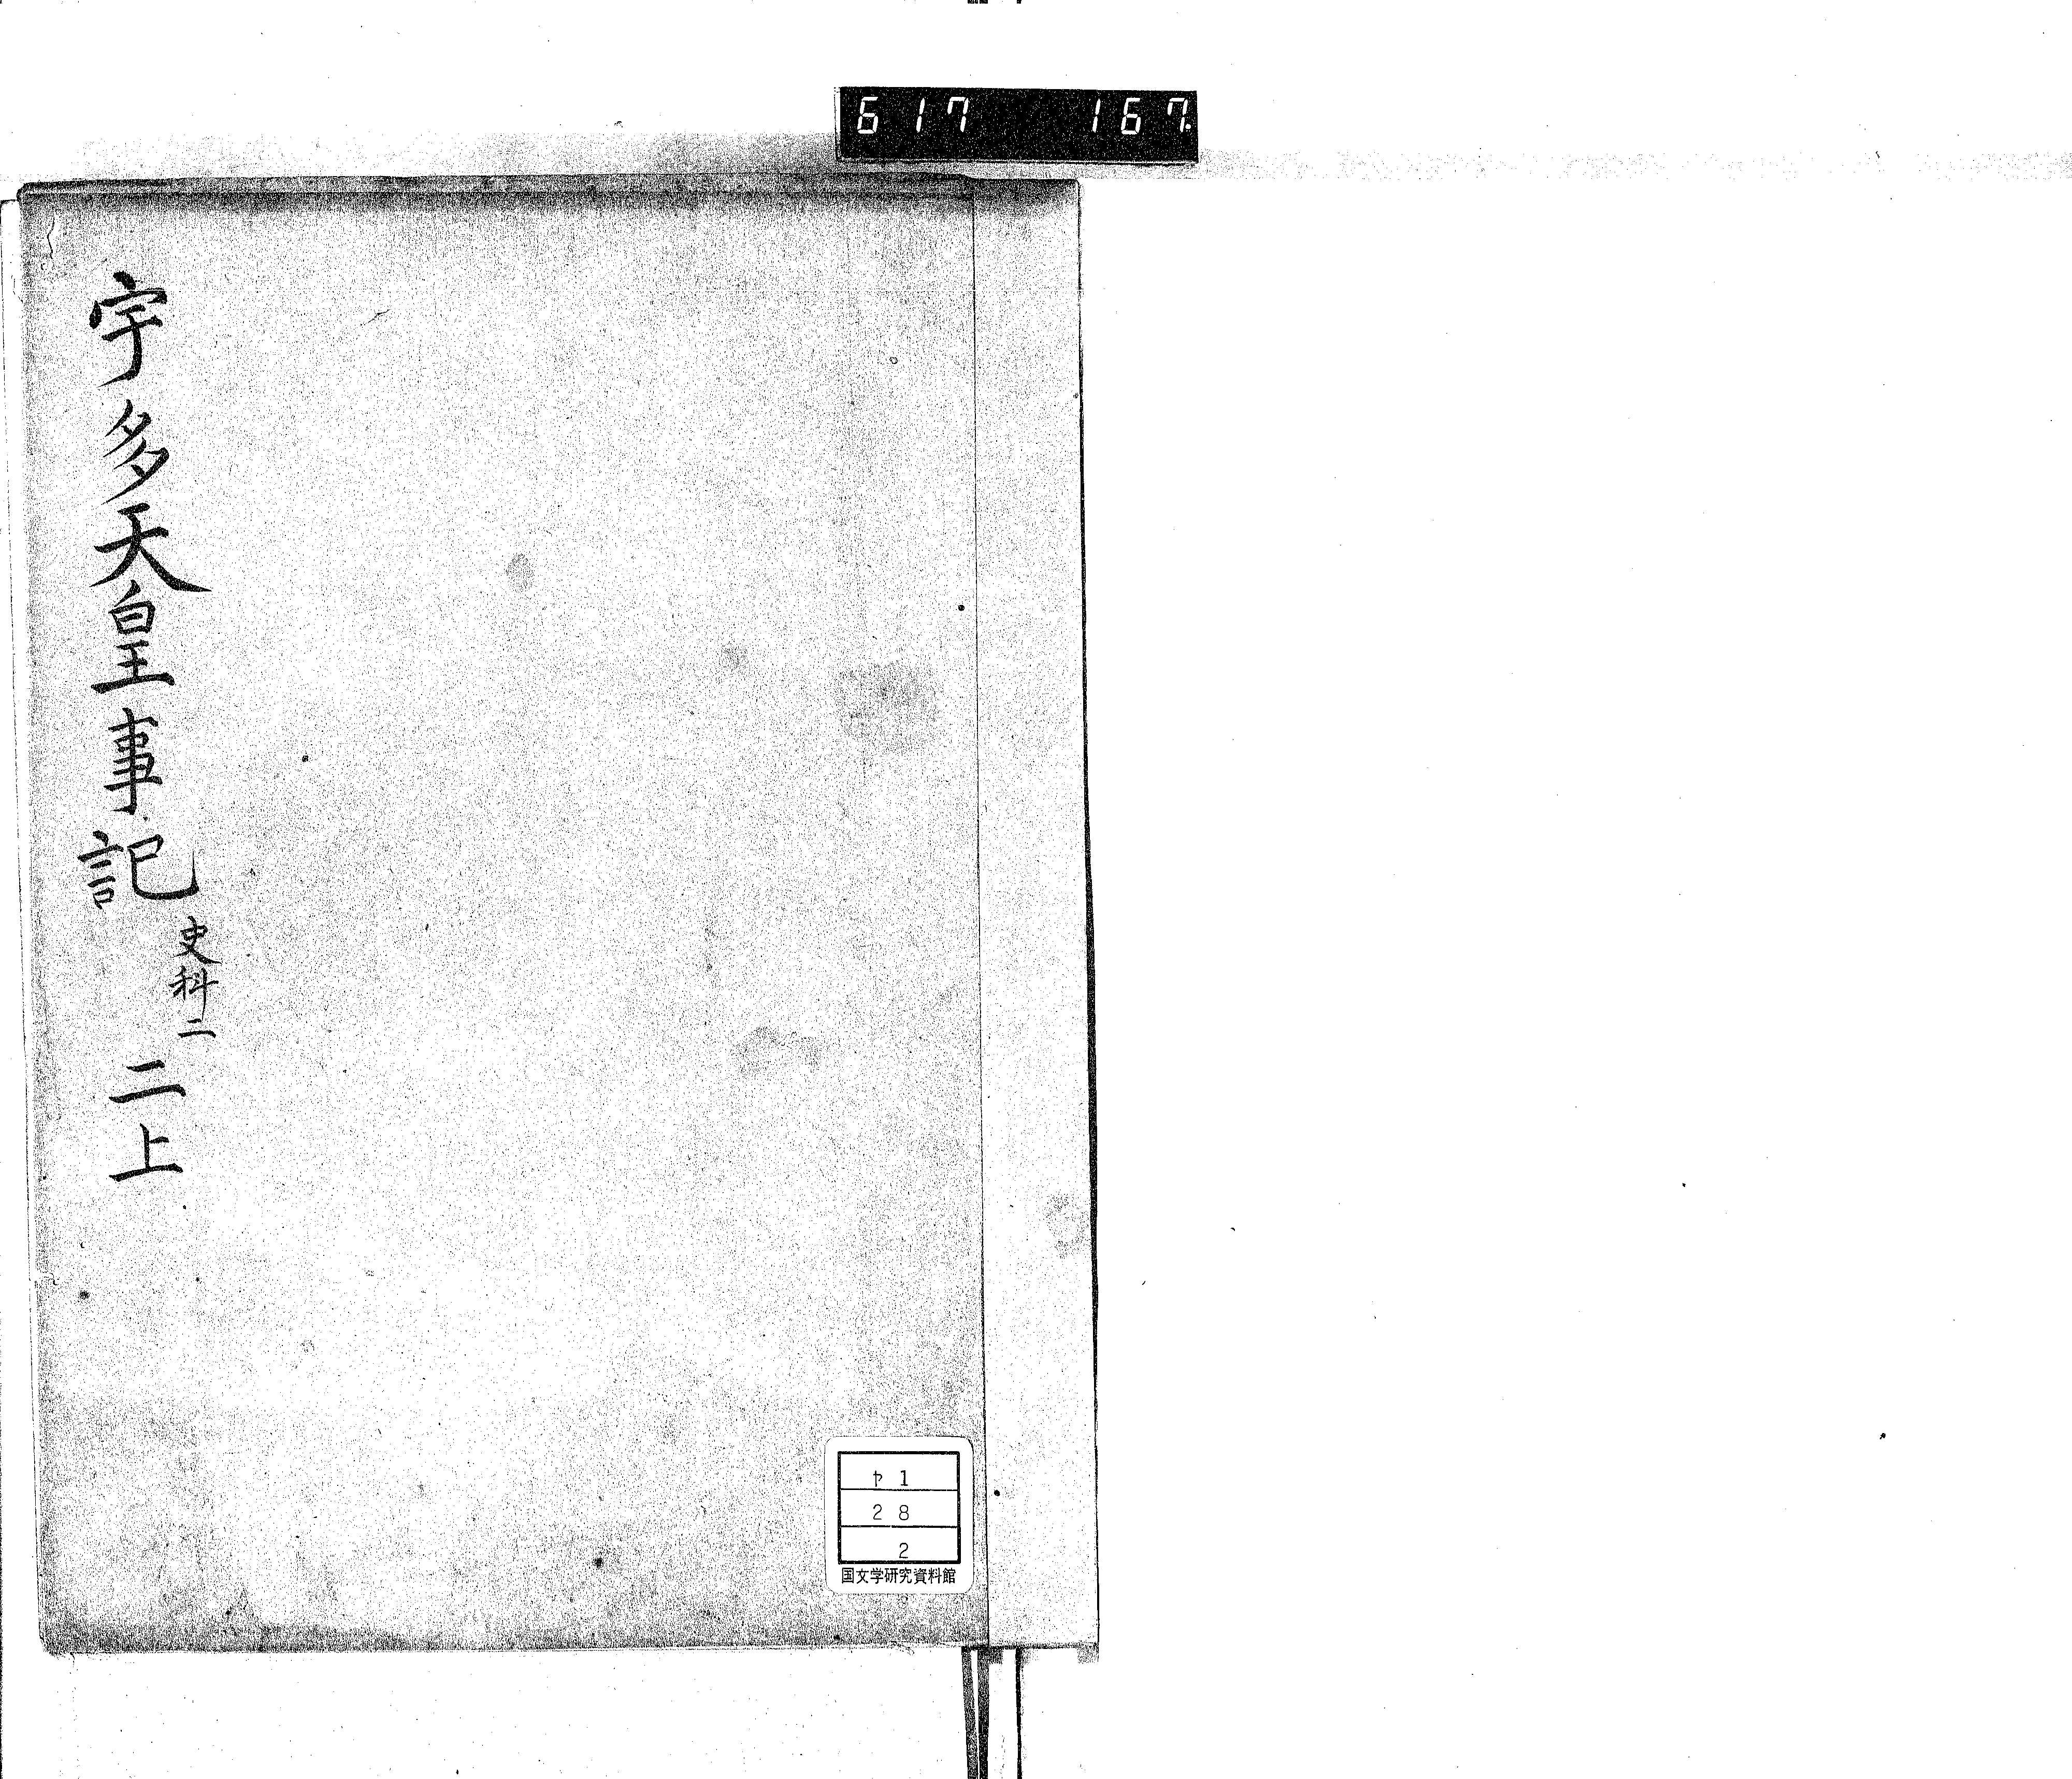 617 167
宇多天皇事記 史科二 二上
ヤ1
28
2
国文学研究資料館